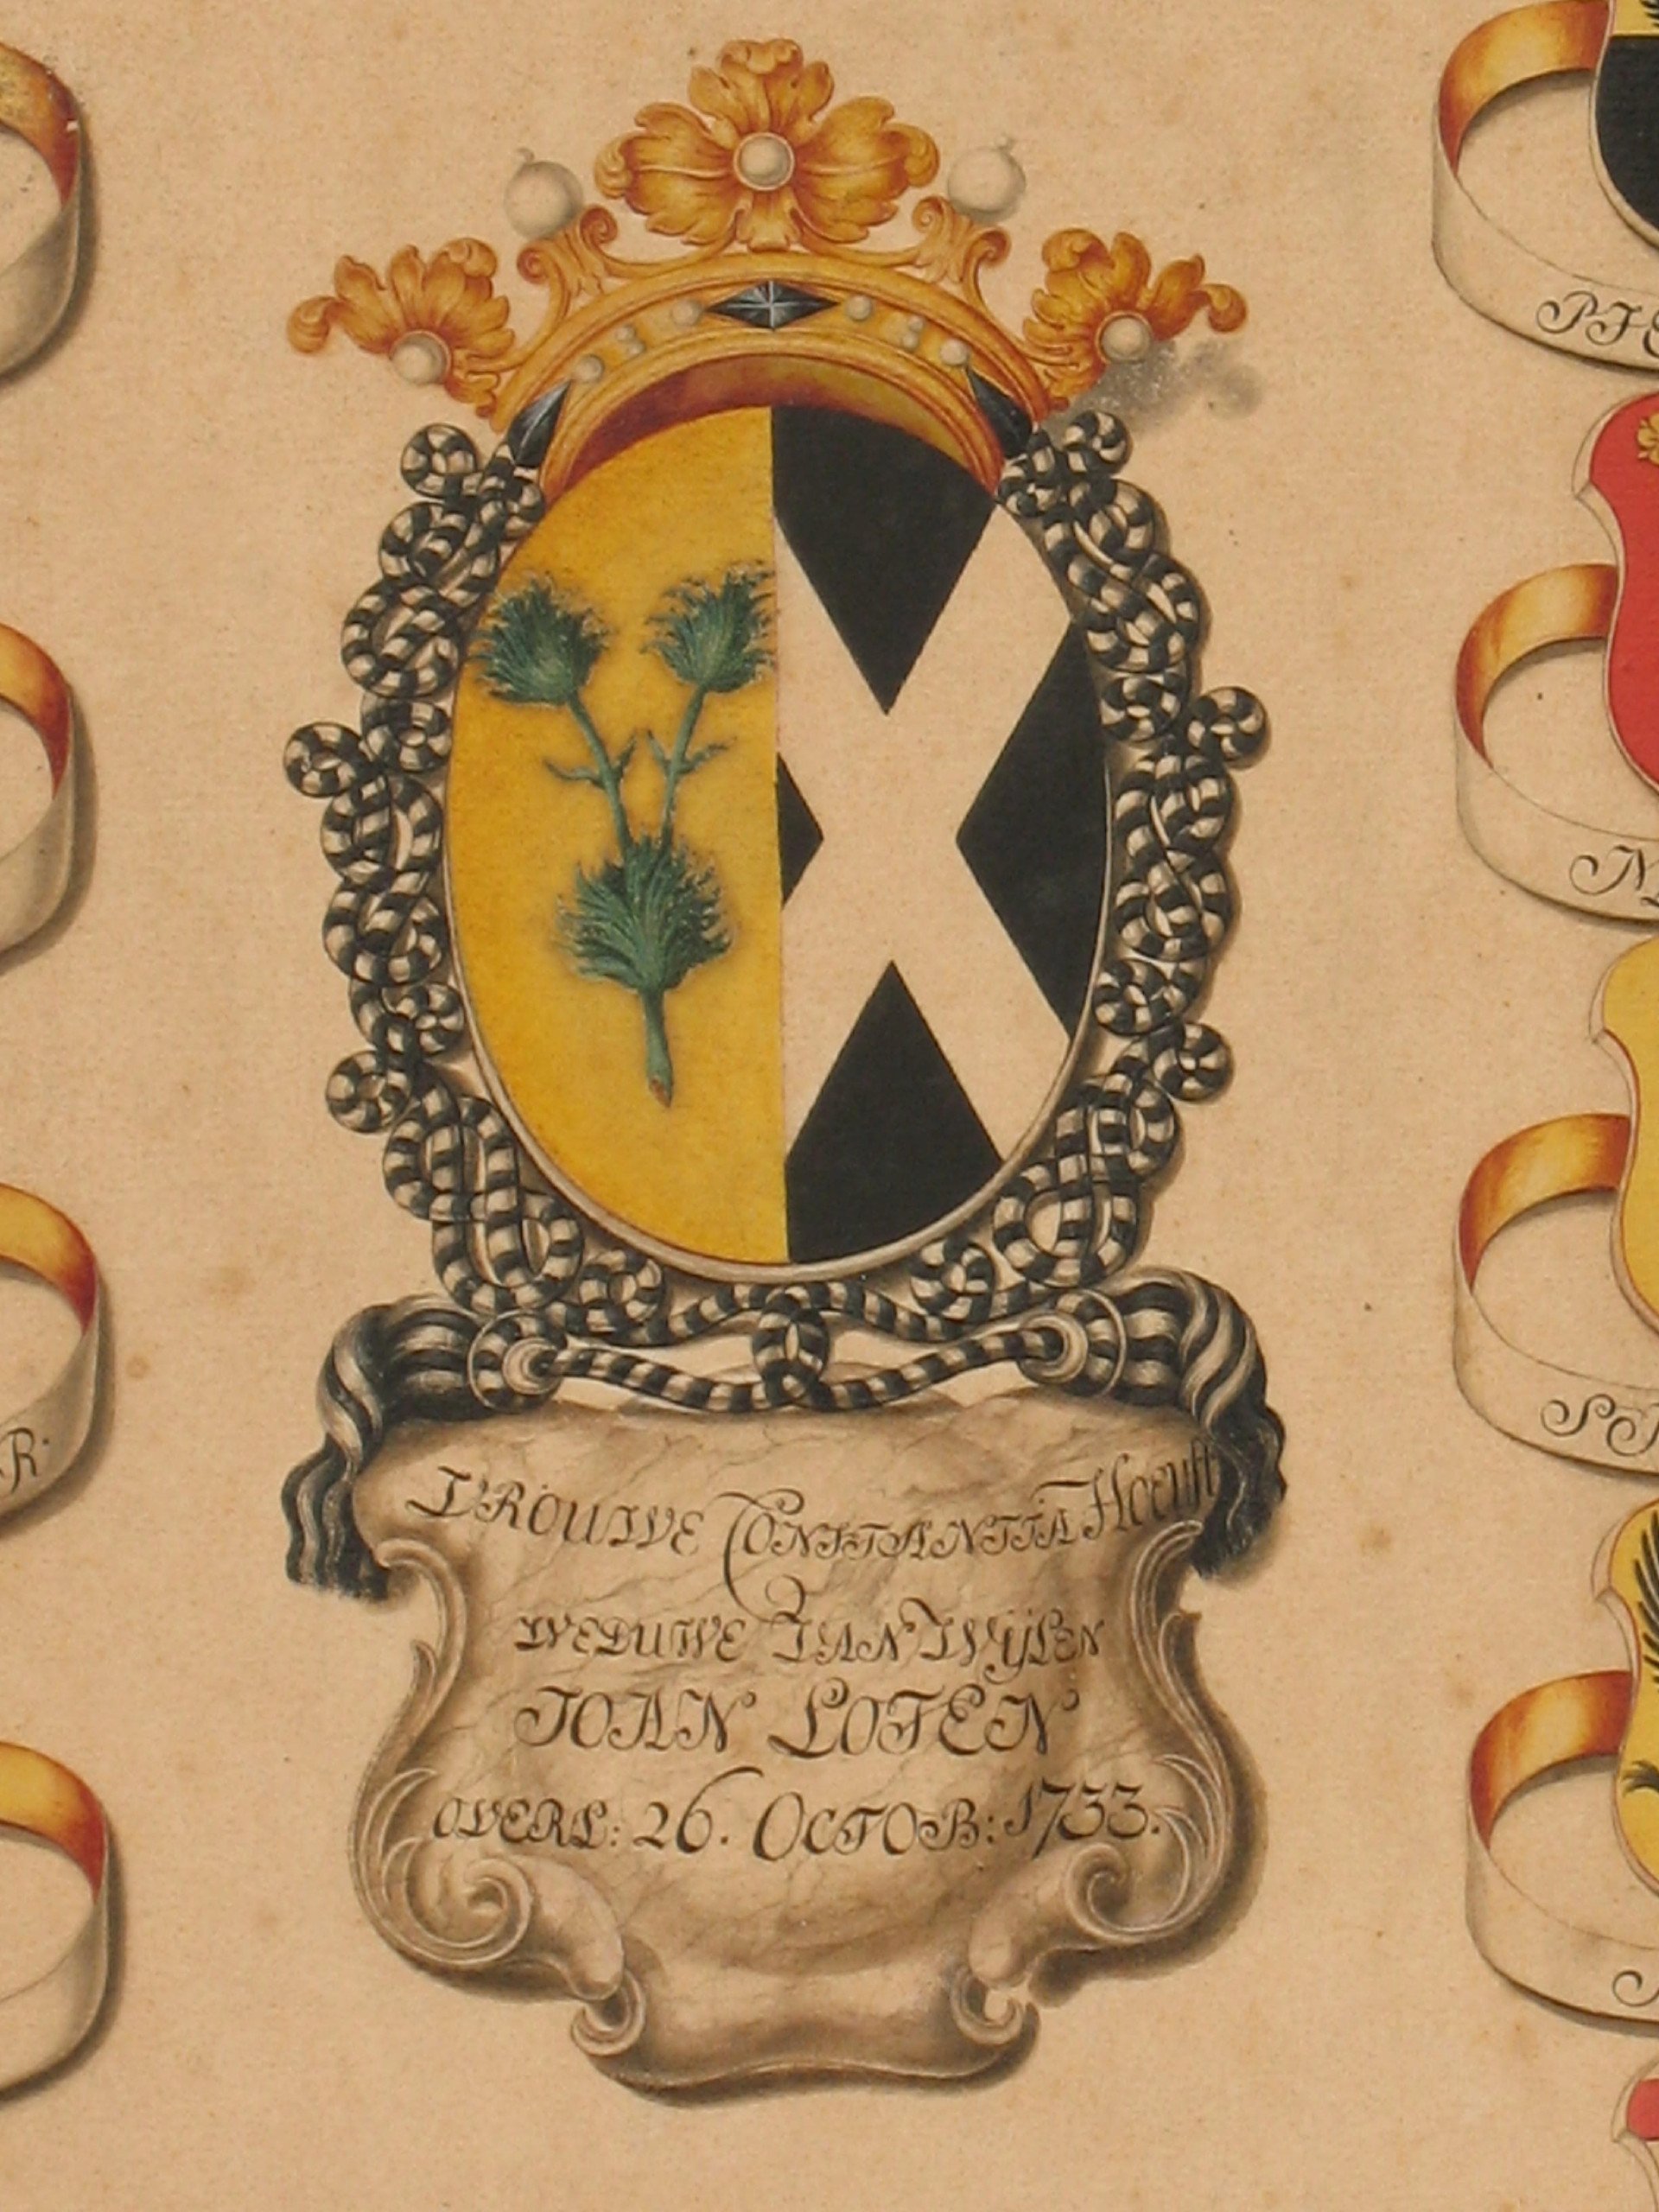 VROUWE CONSTANTIA Hoeuft
WEDUWE VAN WYLEN
JOAN LOTEN
OVERL: 26. OCTOB: 1733.
R·